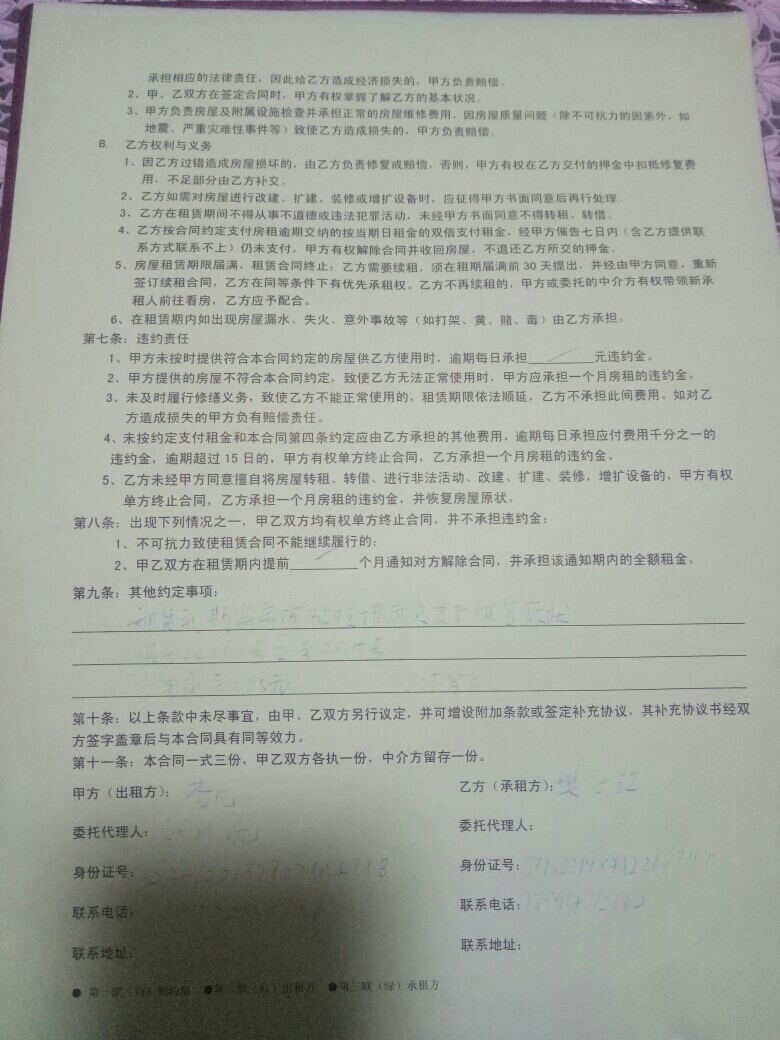 承担相应的法律责任，因此给乙方造成经济损失的，甲方负责赔偿。
2、甲、乙双方在签定合同时，甲方有权掌握了解乙方的基本状况。
3、甲方负责房屋及附属设施检查并承担正常的房屋维修费用，因房屋质量问题（除不可抗力的因素外，如
地震、严重灾难性事件等）致使乙方造成损失的，甲方负责赔偿。
B. 乙方权利与义务
1、因乙方过错造成房屋损坏的，由乙方负责修复或赔偿，否则，甲方有权在乙方交付的押金中扣抵修复费
用，不足部分由乙方补交。
2、乙方如需对房屋进行改建、扩建、装修或增扩设备时，应征得甲方书面同意后再行处理
3、乙方在租赁期间不得从事不道德或违法犯罪活动，未经甲方书面同意不得转租、转借。
4、乙方按合同约定支付房租逾期交纳的按当期日租金的双倍支付租金，经甲方催告七日内（含乙方提供联
系方式联系不上）仍未支付，甲方有权解除合同并收回房屋，不退还乙方所交的押金。
5、房屋租赁期限届满，租赁合同终止；乙方需要续租，须在租期届满前 30 天提出，并经由甲方同意，重新
签订续租合同，乙方在同等条件下有优先承租权。乙方不再续租的，甲方或委托的中介方有权带领新承
租人前往看房，乙方应予配合。
6、在租赁期内如出现房屋漏水、失火、意外事故等（如打架、黄、赌、毒）由乙方承担。
第七条：违约责任
1、甲方未按时提供符合本合同约定的房屋供乙方使用时，逾期每日承担________元违约金。
2、甲方提供的房屋不符合本合同约定，致使乙方无法正常使用时，甲方应承担一个月房租的违约金。
3、未及时履行修缮义务，致使乙方不能正常使用的，租赁期限依法顺延，乙方不承担此间费用。如对乙
方造成损失的甲方负有赔偿责任。
4、未按约定支付租金和本合同第四条约定应由乙方承担的其他费用，逾期每日承担应付费用千分之一的
违约金，逾期超过 15 日的，甲方有权单方终止合同，乙方承担一个月房租的违约金。
5、乙方未经甲方同意擅自将房屋转租、转借、进行非法活动、改建、扩建、装修，增扩设备的，甲方有权
单方终止合同，乙方承担一个月房租的违约金，并恢复房屋原状。
第八条：出现下列情况之一，甲乙双方均有权单方终止合同，并不承担违约金：
1、不可抗力致使租赁合同不能继续履行的；
2、甲乙双方在租赁期内提前________个月通知对方解除合同，并承担该通知期内的全额租金。
第九条：其他约定事项：
第十条：以上条款中未尽事宜，由甲、乙双方另行议定，并可增设附加条款或签定补充协议，其补充协议书经双
方签字盖章后与本合同具有同等效力。
第十一条：本合同一式三份，甲乙双方各执一份，中介方留存一份。
甲方（出租方）： 乙方（承租方）：
委托代理人： 委托代理人：
身份证号： 身份证号：
联系电话： 联系电话：
联系地址： 联系地址：
● 第一联（白） ●第二联（红）出租方 ●第三联（绿）承租方